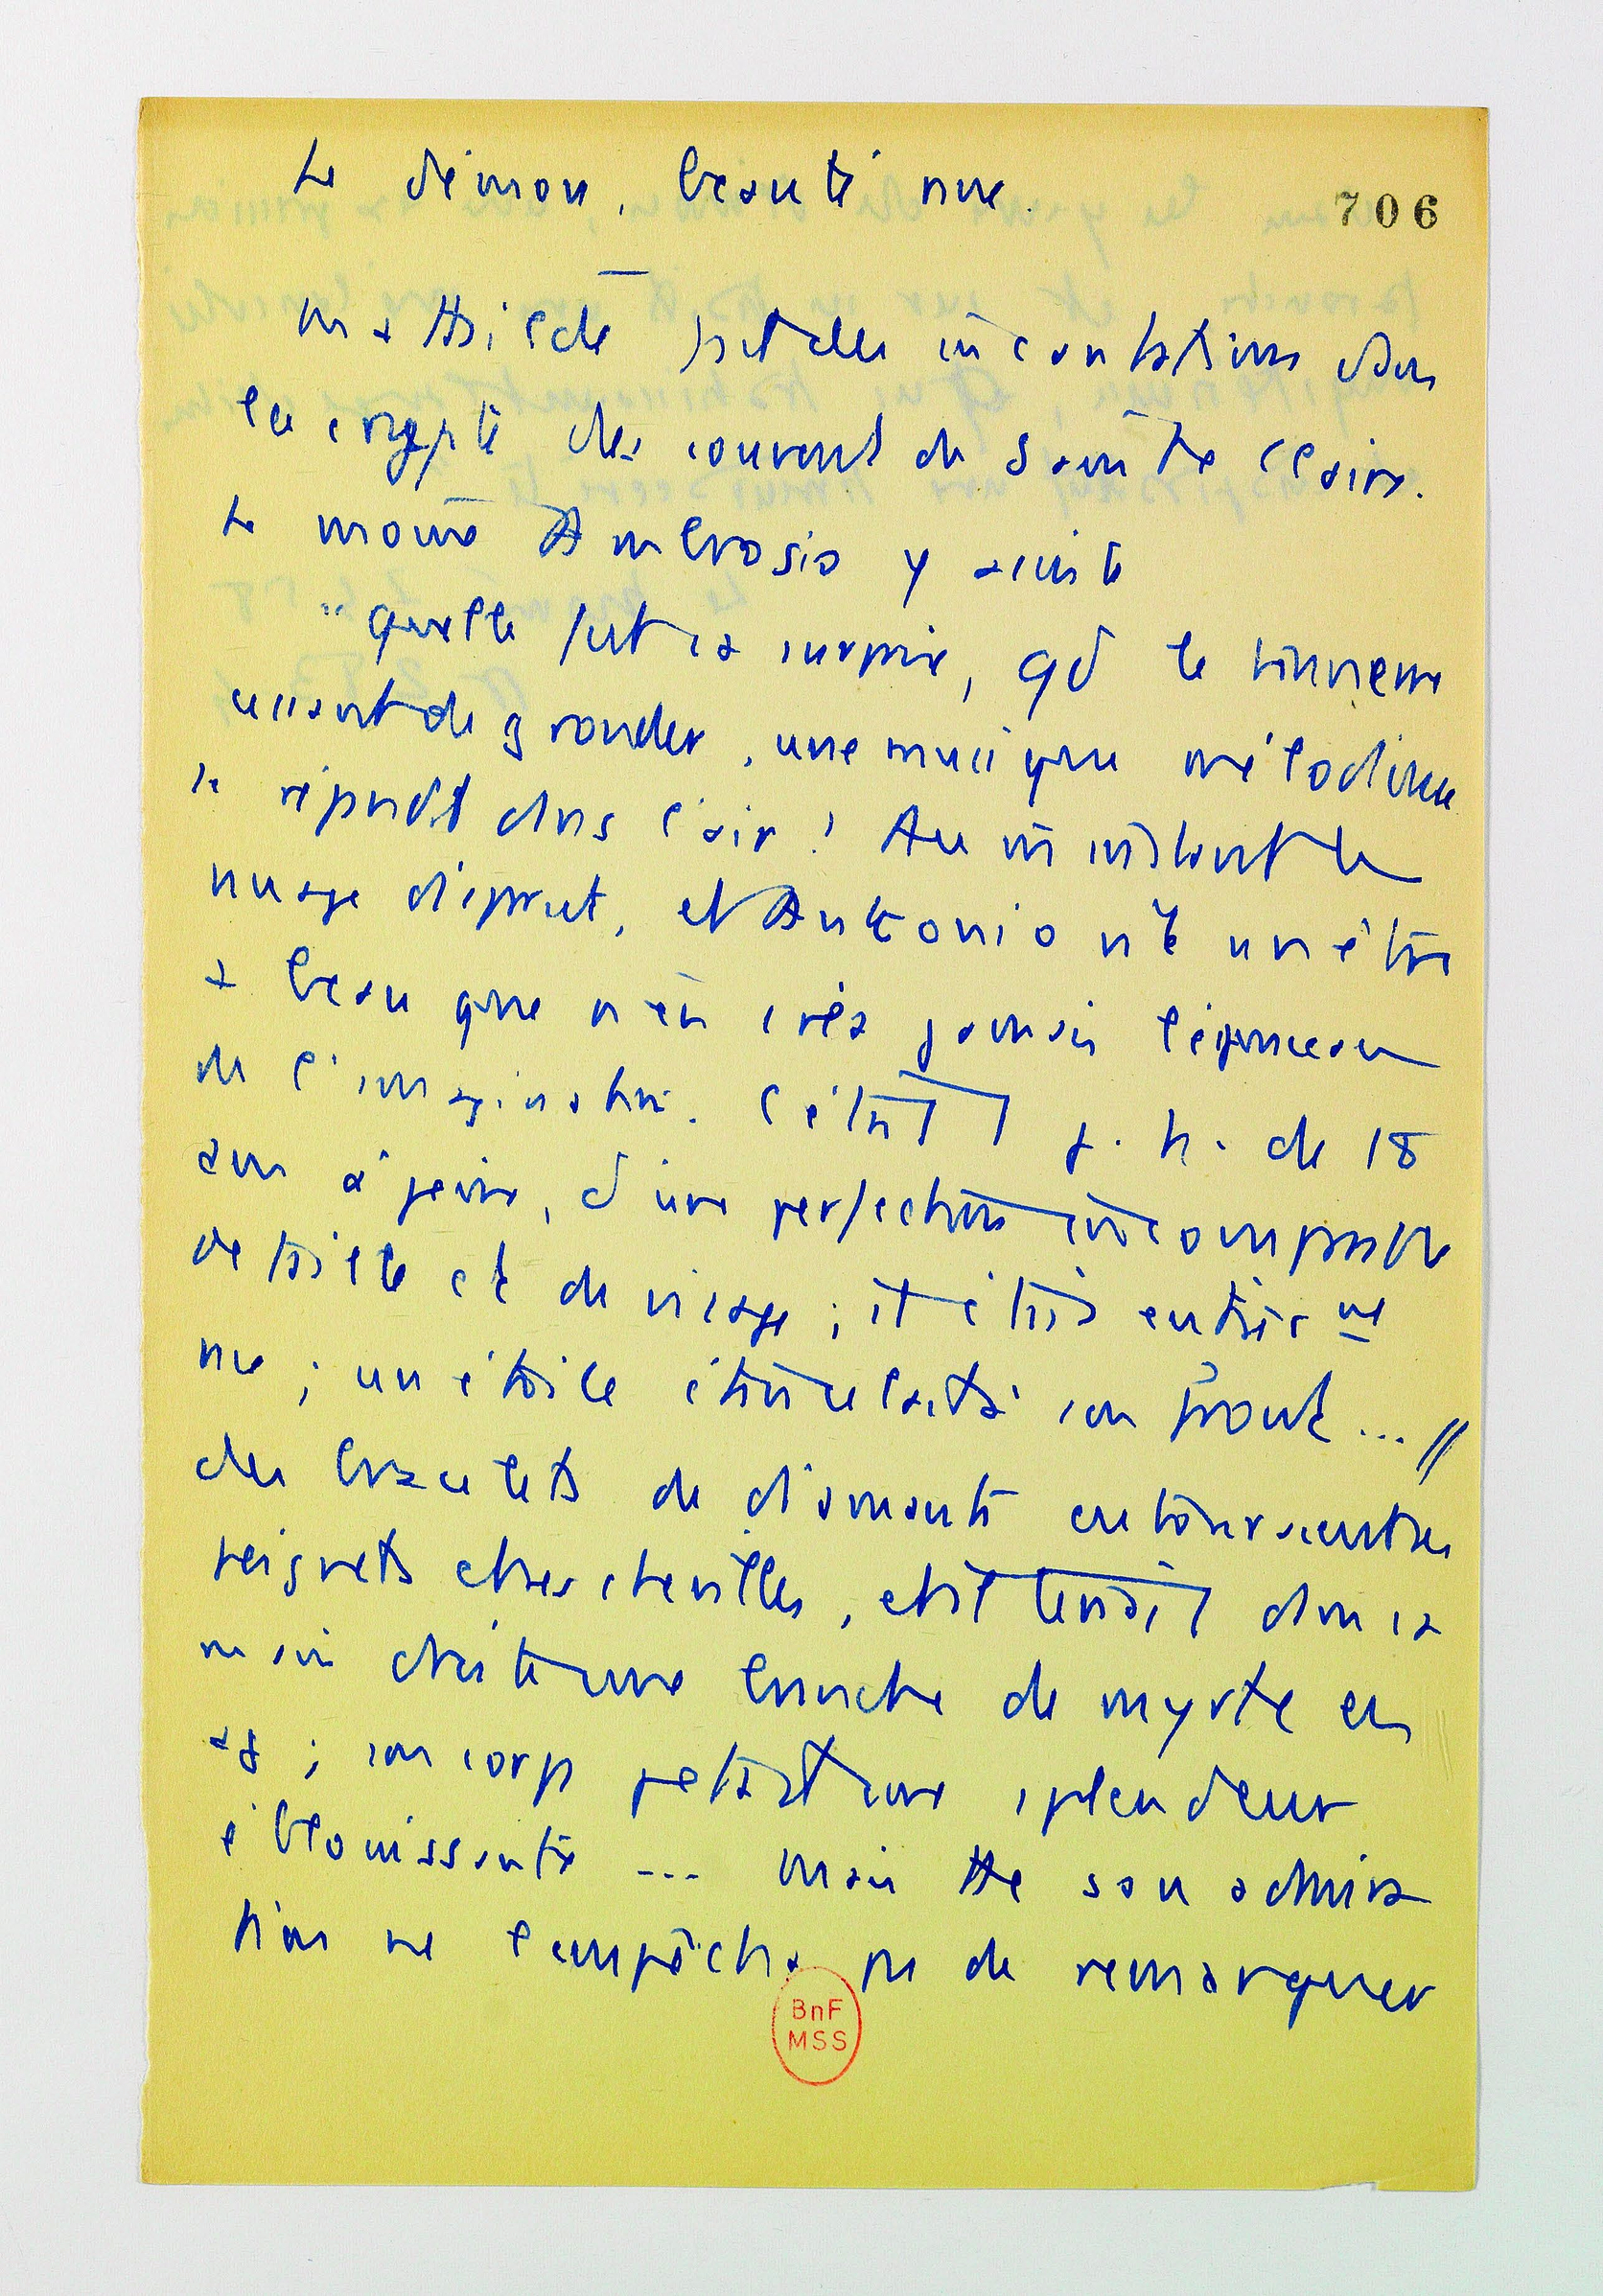 Le démon, beauté nue.
706
Mathilde fait des incantations dans
la crypte des couvent de Sainte Claire.
Le moine Ambrosio y assiste
"Quelle fut sa surprise, qd le tonnerre
cessant de gronder, une musique mélodieuse
se répandit dans l'air! Au m̄ instant le
nuage disparut, et Antonio vit un être
+ beau que n'en créa jamais le pinceau
de l'imagination. C'était un j. h. de 18
ans à peine, d'une perfection incomparable
de taille et de visage; il était entièrem̲e̲
nu; un étoile étincelait à son front... //
des bracelets de diamants entouraient ses
poignets et ses chevilles, et il tenait dans sa
main droite une branche de myrte en
; son corps jetait une splendeur
éblouissante ... Mais tte son admira
tion ne l'empêcha pas de remarquer
BnF
MSS